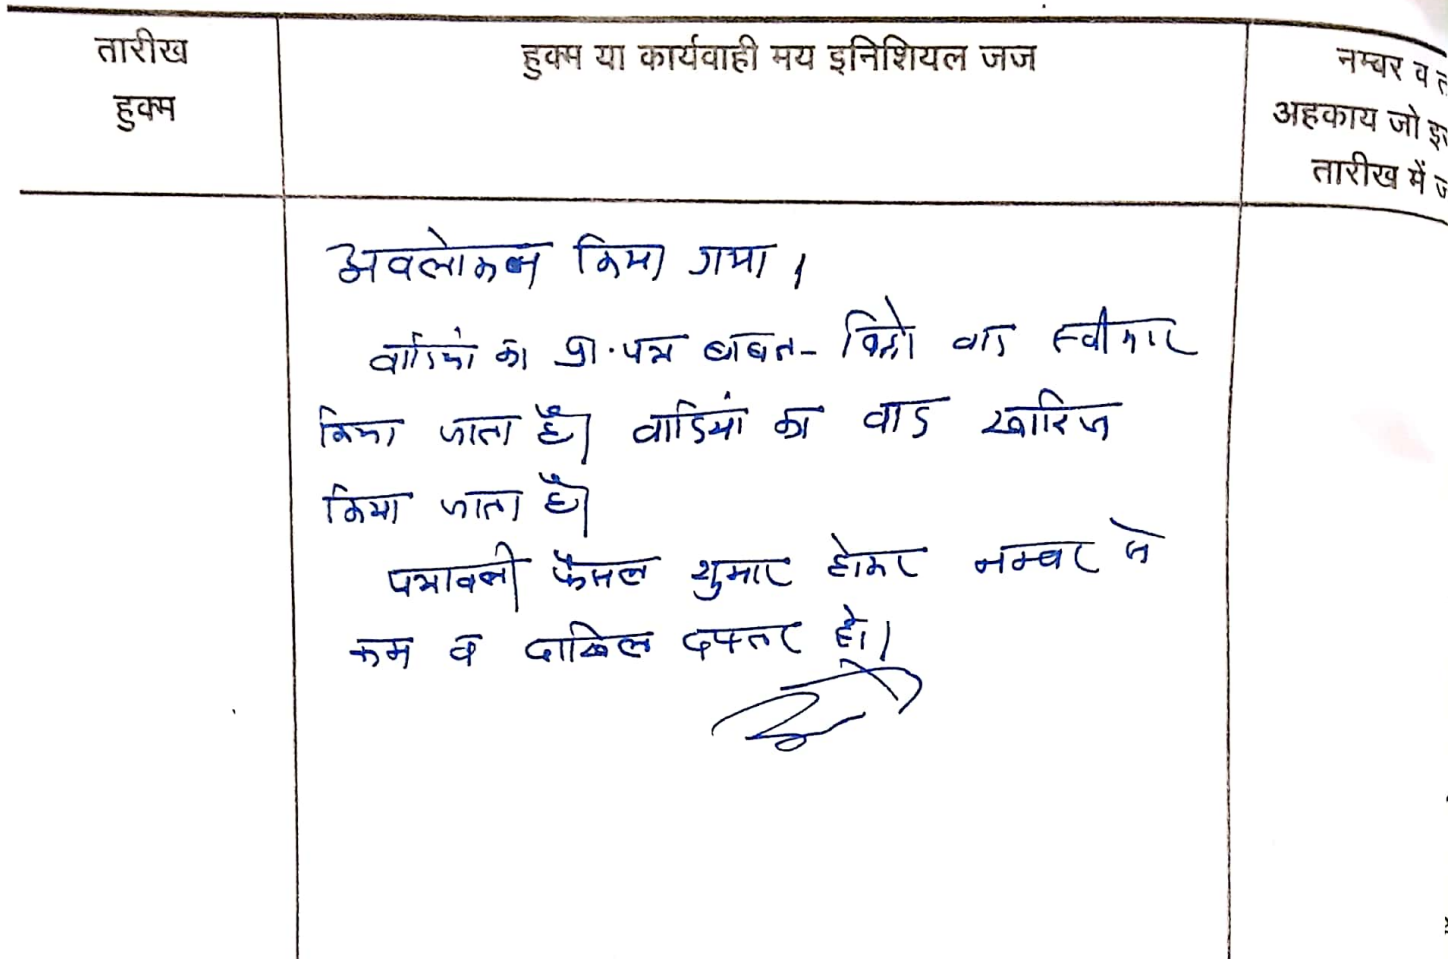 तारीख
हुक्म
हुक्म या कार्यवाही मय इनिशियल जज
नम्बर व त
अहकाय जो इस
तारीख में ज
अवलोकन किया गया।
वादियों का प्रा.पत्र बाबत- विड्रो वाद स्वीकार
किया जाता है। वादियां का वाद खारिज
किया जाता है।
पत्रावली फैसल शुमार होकर नम्बर से
कम व दाखिल दफ्तर हो।